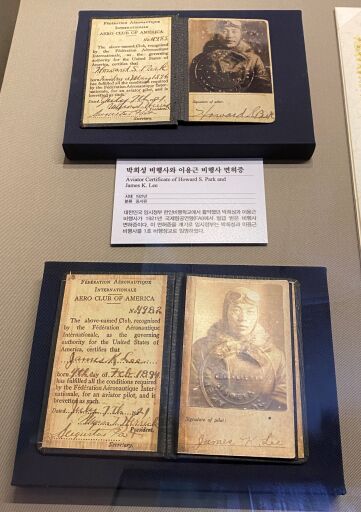 FÉDÉRATION AÉRONAUTIQUE
INTERNATIONALE
AERO CLUB OF AMERICA
The above-named Club, recognized
by the Fédération Aéronautique
Internationale, as the governing
authority for the United States,
certifies that
Howard S. Park
born
has fulfilled all the conditions required
by the Fédération Aéronautique Inter-
nationale, for an aviator pilot, and is
brevetted as such.
Dated
Secretary.
Signature of pilot:
Howard S. Park
박희성 비행사와 이용근 비행사 면허증
Aviator Certificate of Howard S. Park and
James K. Lee
시대: 1921년
대한민국 임시정부 한인비행학교에서 활약했던 박희성과 이용근
비행사가 1921년 국제항공연맹(FAI)에서 발급 받은 비행사
면허증이다. 이 면허증을 계기로 임시정부는 박희성과 이용근
비행사를 1호 비행장교로 임명하였다.
FÉDÉRATION AÉRONAUTIQUE
INTERNATIONALE
AERO CLUB OF AMERICA
The above-named Club, recognized
by the Fédération Aéronautique
Internationale, as the governing
authority for the United States,
certifies that
James K. Lee
born 9th day of Feb 1894
has fulfilled all the conditions required
by the Fédération Aéronautique Inter-
nationale, for an aviator pilot, and is
brevetted as such.
Dated
President.
Secretary.
Signature of pilot:
James K. Lee